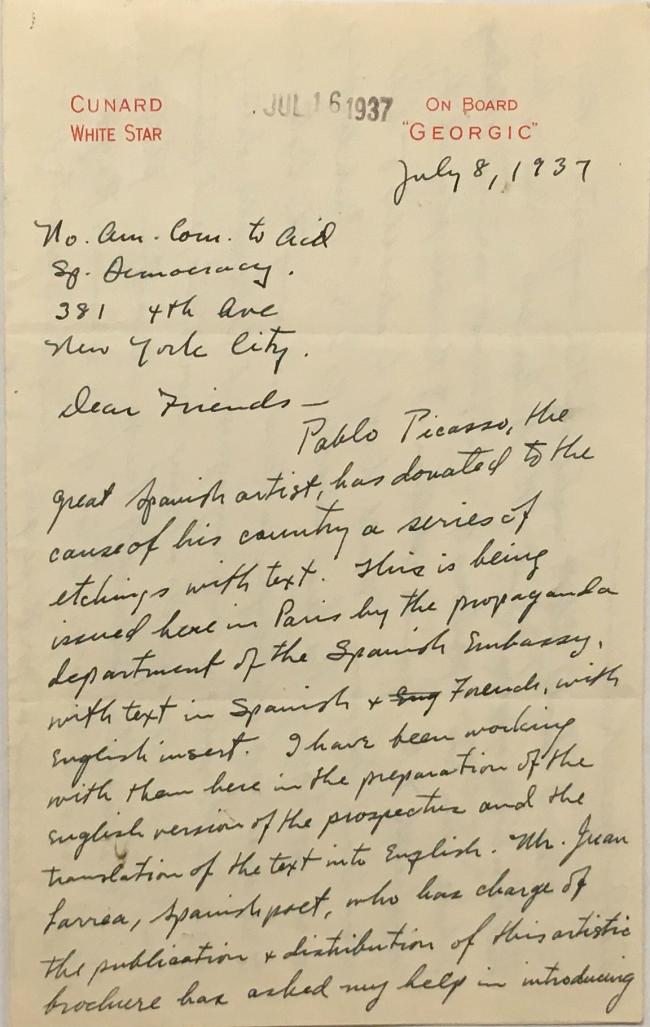 CUNARD
WHITE STAR
JUL 16 1937
ON BOARD
"GEORGIC"
July 8, 1937
No. Am. Com. to Aid
Sp. Democracy.
381 4th Ave
New York City.
Dear Friends —
Pablo Picasso, the
great Spanish artist, has donated to the
cause of his country a series of
etchings with text. This is being
issued here in Paris by the propaganda
department of the Spanish Embassy,
with text in Spanish & Eng French, with
English insert. I have been working
with them here in the preparation of the
English version of the prospectus and the
translation of the text into English. Mr. Juan
Larrea, Spanish poet, who has charge of
the publication & distribution of this artistic
brochure has asked my help in introducing